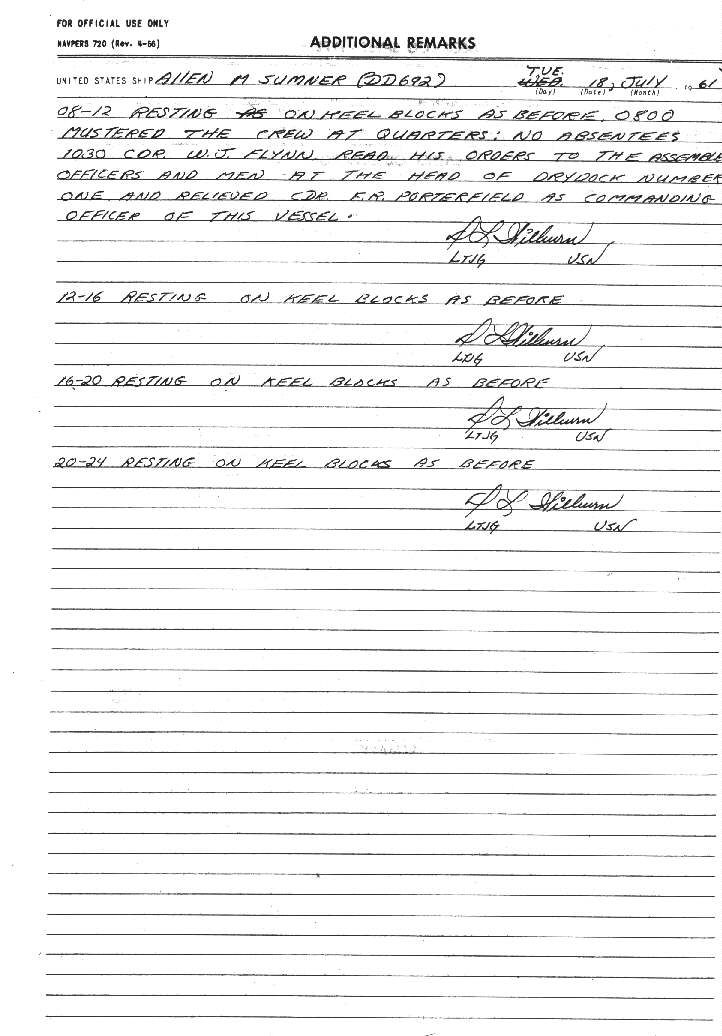 FOR OFFICIAL USE ONLY
NAVPERS 720 (Rev. 4-56)
ADDITIONAL REMARKS
TUE.
UNITED STATES SHIP ALLEN M SUMNER (DD692) WED. 18, JULY 1961
(Day) (Date) (Month)
08-12 RESTING AS ON KEEL BLOCKS AS BEFORE. 0800
MUSTERED THE CREW AT QUARTERS: NO ABSENTEES
1030 CDR. W.J. FLYNN READ HIS ORDERS TO THE ASSEMBLE
OFFICERS AND MEN AT THE HEAD OF DRYDOCK NUMBER
ONE AND RELIEVED CDR. F.R. PORTERFIELD AS COMMANDING
OFFICER OF THIS VESSEL.
LTJG USN
12-16 RESTING ON KEEL BLOCKS AS BEFORE
LTJG USN
16-20 RESTING ON KEEL BLOCKS AS BEFORE
LTJG USN
20-24 RESTING ON KEEL BLOCKS AS BEFORE
LTJG USN